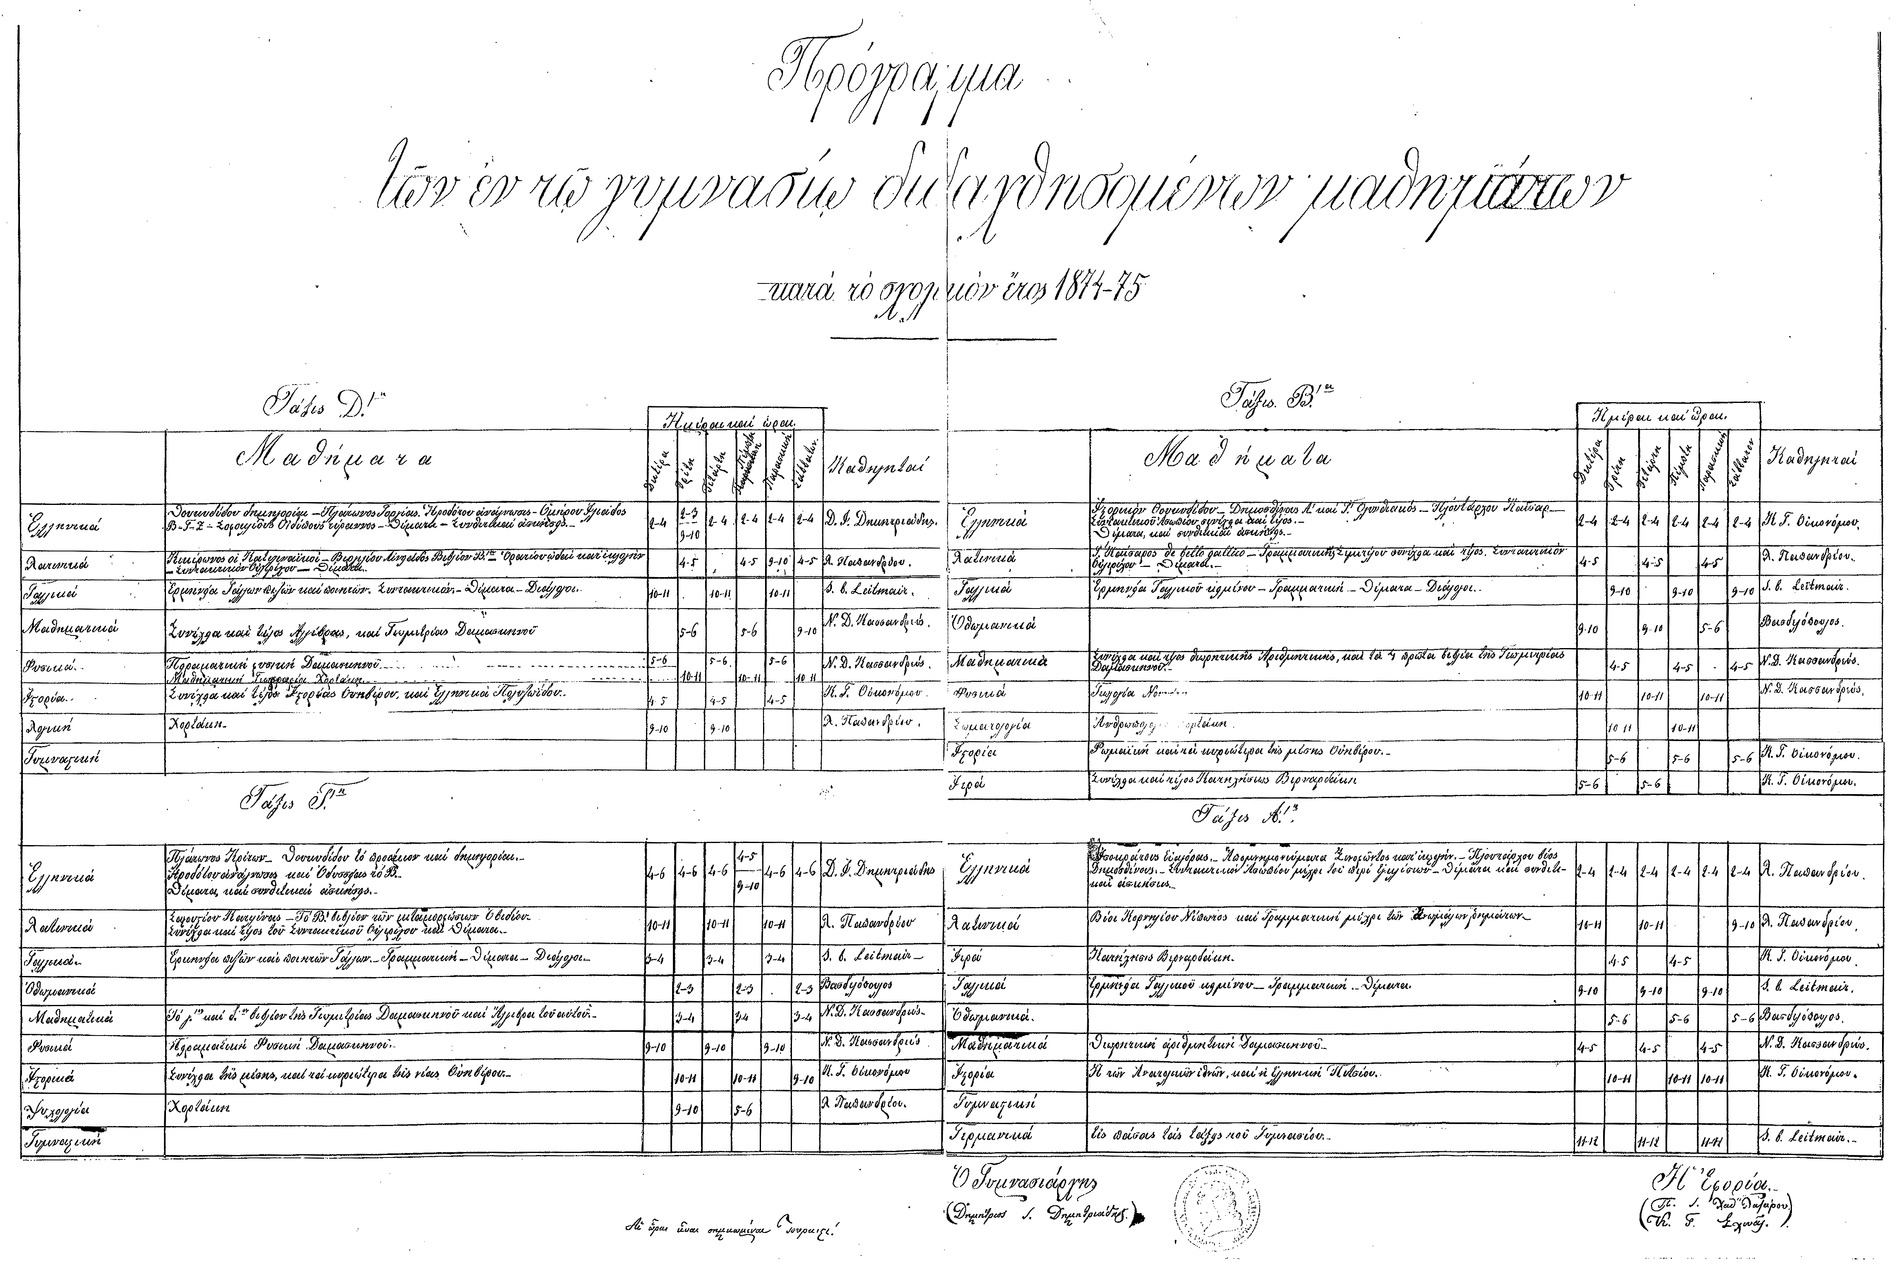 Πρόγραμμα
τῶν ἐν τῷ γυμνασίῳ διδαχθησομένων μαθημάτων
κατὰ τὸ σχολικὸν ἔτος 1874-75
Τάξις Δ.'
Ἡμέραι καὶ ὧραι
Μαθήματα
Δευτέρα Τρίτη Τετάρτη Πέμπτη Παρασκευή Σάββατον
Καθηγηταί
Ἑλληνικά
Θουκυδίδου δημηγορίαι – Πλάτωνος Γοργίας. Ἡροδότου ἀνάγνωσις – Ὁμήρου Ἰλιάδος
Β-Γ-Ζ – Σοφοκλέους Οἰδίπους τύραννος – Θέματα – Συνθετικαὶ ἀσκήσεις. –
2-4 2-3 9-10 2-4 2-4 2-4 2-4 Δ. Ι. Δημητριάδης.
Λατινικά
Κικέρωνος οἱ Κατιλιναϊκοί – Βιργιλίου Αἰνειάδος Βιβλίον Β. Ὁρατίου ᾠδαὶ κατ' ἐκλογήν
– Συντακτικὸν Οὐλερίχου – Θέματα. –
4-5 4-5 9-10 4-5 Λ. Παπανδρέου.
Γαλλικά
Ἑρμηνεία Γάλλων πεζῶν καὶ ποιητῶν. Συντακτικόν. – Θέματα – Διάλογοι.
10-11 10-11 10-11 S. b. Leitmair.
Μαθηματικά
Συνέχεια καὶ τέλος Ἀλγέβρας, καὶ Γεωμετρίας Δαμασκηνοῦ
5-6 5-6 9-10 Ν. Δ. Κασσανδρεύς.
Φυσικά.
Πειραματικὴ φυσικὴ Δαμασκηνοῦ.
Μαθηματικὴ Γεωγραφία Χορτάκη.
5-6 5-6 5-6 Ν. Δ. Κασσανδρεύς.
10-11 10-11 10-11
Ἱστορία.
Συνέχεια καὶ τέλος Ἱστορίας Οὐηβέρου, καὶ Ἑλληνικὰ
4-5 4-5 4-5 Κ. Γ. Οἰκονόμου.
Λογική
Χορτάκη.
9-10 9-10 Λ. Παπανδρέου.
Γυμναστική
Τάξις Γ.'
Ἑλληνικά
Πλάτωνος Κρίτων – Θουκυδίδου τὸ προοίμιον καὶ δημηγορίαι. –
Ἡροδότου ἀνάγνωσις καὶ Ὀδυσσείας τὸ Β. –
Θέματα, καὶ συνθετικαὶ ἀσκήσεις. –
4-6 4-6 4-6 4-5 9-10 4-6 4-6 Δ. Ι. Δημητριάδης
Λατινικά
Σαλουστίου Κατιλίνας – Τὸ Β.' βιβλίον τῶν μεταμορφώσεων Ὀβιδίου.
Συνέχεια καὶ τέλος τοῦ Συντακτικοῦ Οὐλερίχου καὶ Θέματα. –
10-11 10-11 10-11 Λ. Παπανδρέου
Γαλλικά. –
Ἑρμηνεία πεζῶν καὶ ποιητῶν Γάλλων. – Γραμματική – Θέματα – Διάλογοι. –
3-4 3-4 3-4 S. b. Leitmair –
Ὀθωμανικά
2-3 2-3 2-3 Βασιλόπουλος
Μαθηματικά
Τὸ γ.' καὶ δ.' βιβλίον τῆς Γεωμετρίας Δαμασκηνοῦ καὶ Ἄλγεβρα τοῦ αὐτοῦ. –
3-4 3-4 3-4 Ν. Δ. Κασσανδρεύς. –
Φυσικά
Πειραματικὴ Φυσικὴ Δαμασκηνοῦ. –
9-10 9-10 9-10 Ν. Δ. Κασσανδρεύς
Ἱστορικά
Συνέχεια τῆς μέσης, καὶ τὰ κυριώτερα τῆς νέας Οὐηβέρου. –
10-11 10-11 9-10 Κ. Γ. Οἰκονόμου
Ψυχολογία
Χορτάκη
9-10 5-6 Λ. Παπανδρέου.
Γυμναστική
Τάξις. Β.'
Ἡμέραι καὶ ὧραι.
Μαθήματα
Δευτέρα Τρίτη Τετάρτη Πέμπτη Παρασκευή Σάββατον
Καθηγηταί
Ἑλληνικά
Ἱστορικῶν Θουκυδίδου – Δημοσθένους Α.' καὶ Γ.' Ὀλυνθιακός – Πλουτάρχου Καῖσαρ –
Συντακτικοῦ Ἀσωπίου συνέχεια καὶ τέλος. –
Θέματα, καὶ συνθετικαὶ ἀσκήσεις. –
2-4 2-4 2-4 2-4 2-4 2-4 Κ. Γ. Οἰκονόμου.
Λατινικά
Γ. Καίσαρος de bello gallico – Γραμματικῆς συνέχεια καὶ τέλος. Συντακτικὸν
Οὐλερίχου – Θέματα. –
4-5 4-5 4-5 Λ. Παπανδρέου.
Γαλλικά
Ἑρμηνεία Γαλλικοῦ κειμένου – Γραμματική – Θέματα – Διάλογοι.
9-10 9-10 9-10 S. b. Leitmair.
Ὀθωμανικά
9-10 9-10 5-6 Βασιλόπουλος.
Μαθηματικά
Συνέχεια καὶ τέλος θεωρητικῆς Ἀριθμητικῆς, καὶ τὰ 4 πρῶτα βιβλία τῆς Γεωμετρίας
Δαμασκηνοῦ.
4-5 4-5 4-5 Ν. Δ. Κασσανδρεύς.
Φυσικά
Γεωλογία
10-11 10-11 10-11 Ν. Δ. Κασσανδρεύς.
Σωματολογία
10-11 10-11
Ἱστορία
Ρωμαϊκὴ καὶ τὰ κυριώτερα τῆς μέσης Οὐηβέρου. –
5-6 5-6 5-6 Κ. Γ. Οἰκονόμου.
Ἱερά
Συνέχεια καὶ τέλος Κατηχήσεως Βερναρδάκη
5-6 5-6 Κ. Γ. Οἰκονόμου.
Τάξις Α.'
Ἑλληνικά
Ἰσοκράτους Εὐαγόρας. – Ἀπομνημονεύματα Ξενοφῶντος κατ' ἐκλογήν. – Πλουτάρχου βίος
Δημοσθένους. – Συντακτικὸν Ἀσωπίου μέχρι τοῦ περὶ ἐγκλίσεων – Θέματα καὶ συνθετι-
καὶ ἀσκήσεις. –
2-4 2-4 2-4 2-4 2-4 2-4 Λ. Παπανδρέου.
Λατινικά
Βίοι Κορνηλίου Νέπωτος καὶ Γραμματικὴ μέχρι τῶν ἀνωμάλων ῥημάτων –
10-11 10-11 9-10 Λ. Παπανδρέου.
Ἱερά
Κατήχησις Βερναρδάκη.
4-5 4-5 Κ. Γ. Οἰκονόμου.
Γαλλικά
Ἑρμηνεία Γαλλικοῦ κειμένου – Γραμματική – Θέματα
9-10 9-10 9-10 S. b. Leitmair.
Ὀθωμανικά.
5-6 5-6 5-6 Βασιλόπουλος.
Μαθηματικά
Θεωρητικὴ ἀριθμητικὴ Δαμασκηνοῦ –
4-5 4-5 4-5 Ν. Δ. Κασσανδρεύς.
Ἱστορία
Ἡ τῶν Ἀνατολικῶν ἐθνῶν, καὶ ἡ Ἑλληνική
10-11 10-11 10-11 Κ. Γ. Οἰκονόμου.
Γυμναστική
Γερμανικά
εἰς πάσας τὰς τάξεις τοῦ Γυμνασίου. –
11-12 11-12 S. b. Leitmair. –
Ὁ Γυμνασιάρχης
(Δημήτριος Ι. Δημητριάδης)
Ἡ Ἐφορία.
Αἱ ὧραι εἶναι σημειωμέναι Τουρκιστί